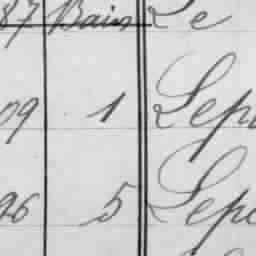 87 Bains Le
09 1 Lep
26 5 Lepe